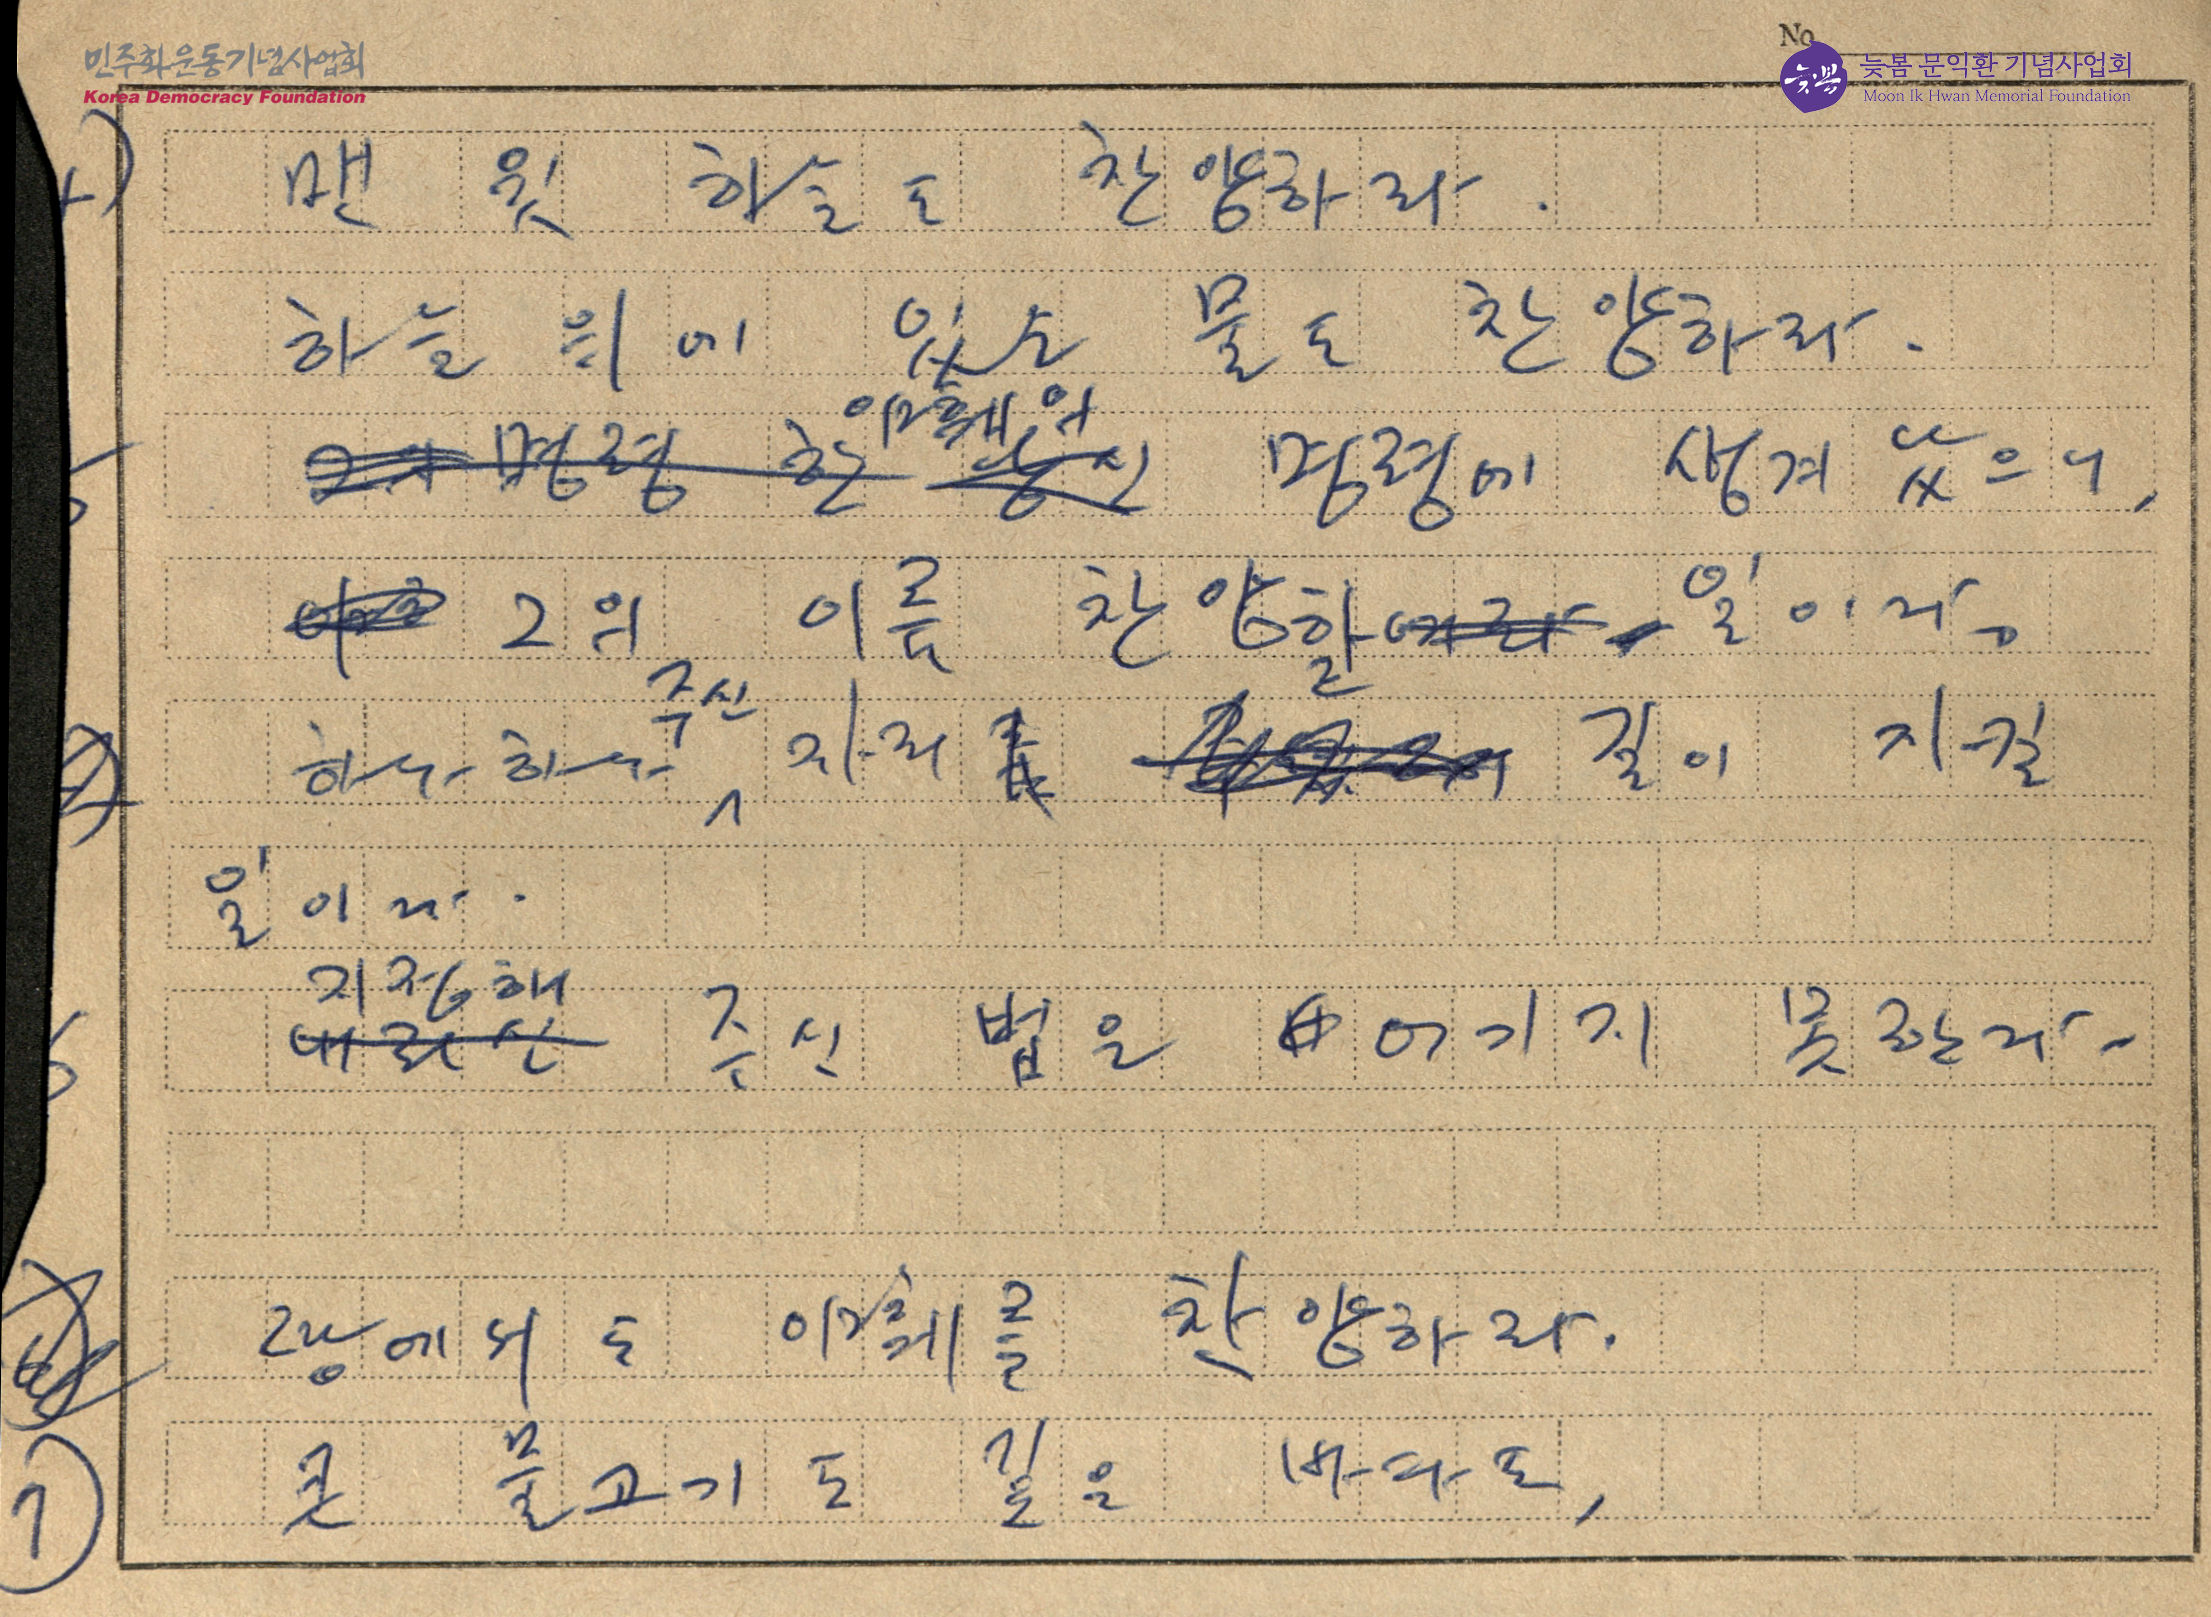 민주화운동기념사업회
Korea Democracy Foundation
No.
늦봄 문익환 기념사업회
Moon Ik Hwan Memorial Foundation
4) 맨 윗 하늘도 찬양하라.
하늘 위에 있는 물도 찬양하라.
야훼의
5 명령 한 명령에 생겨 났으니,
그의 이름 찬양할 일이다.
주신
하나하나 자리 길이 지킬
일이다.
지정해
6 내리신 주신 법은 어기지 못한다.
땅에서도 야훼를 찬양하라.
7 큰 물고기도 깊은 바다도,